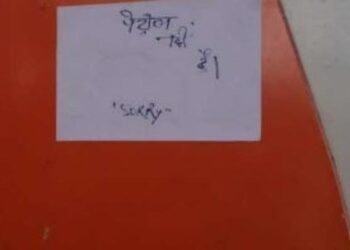 पेट्रोल
नहीं
है।
"SORRY"